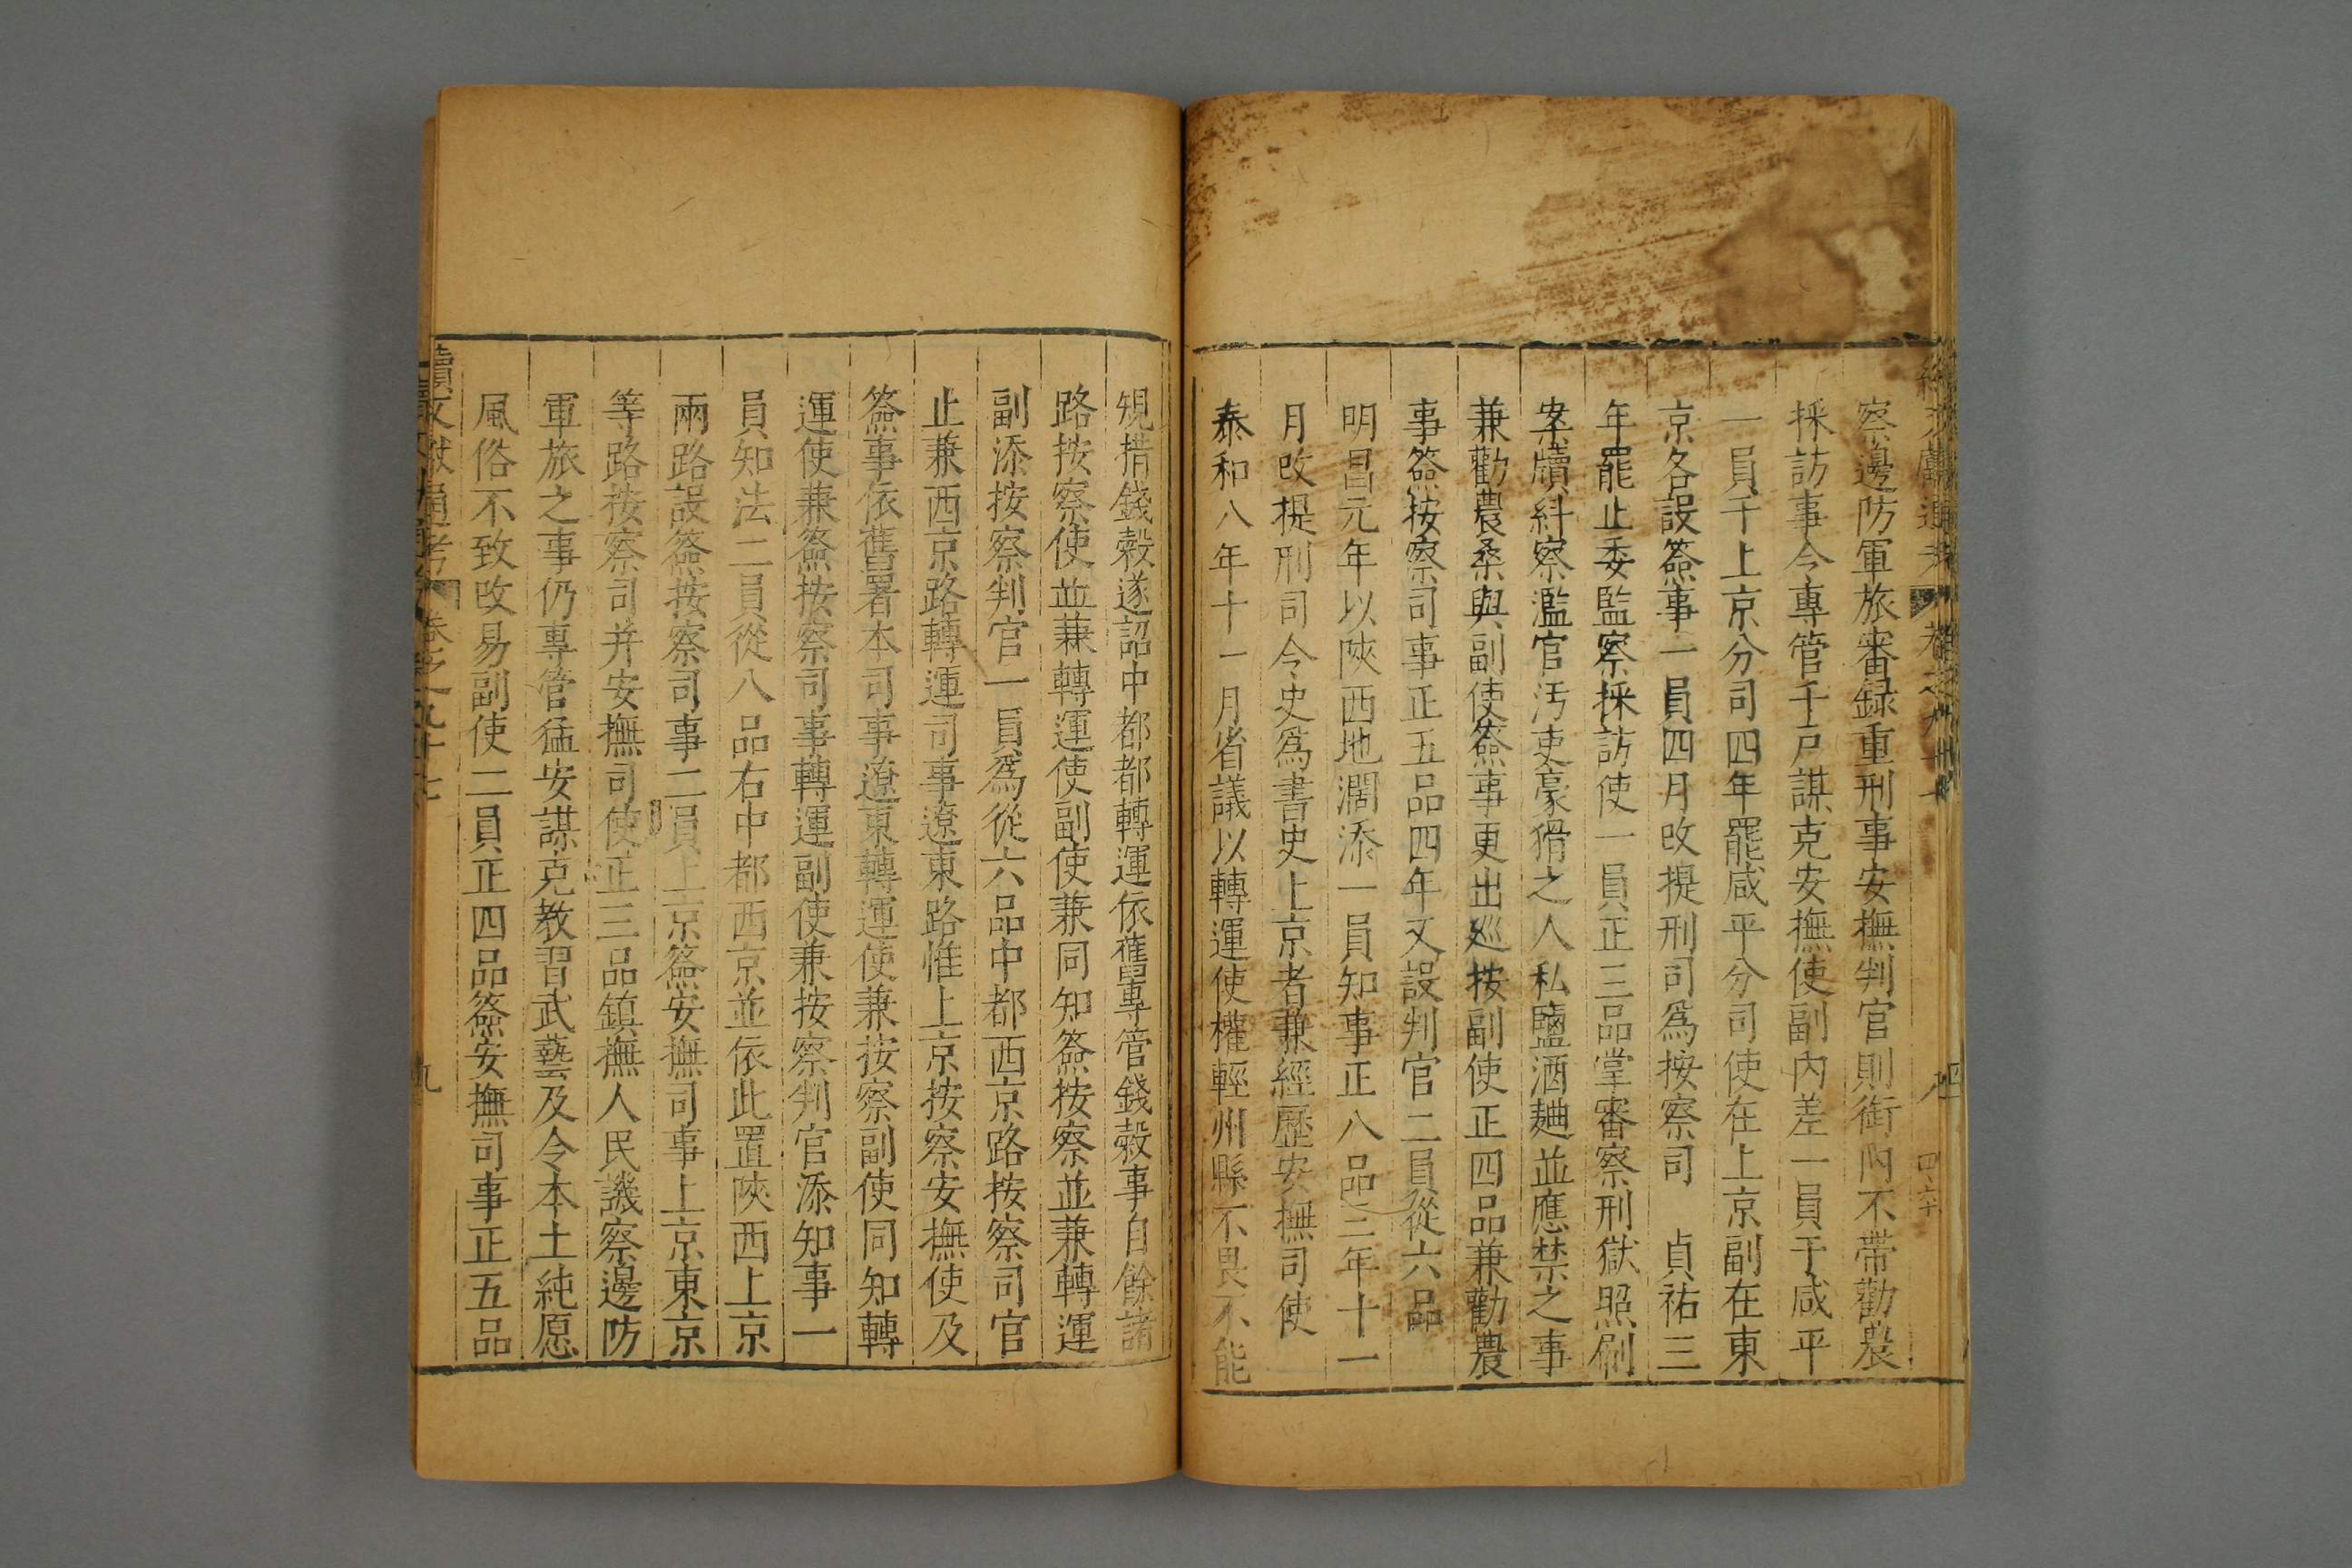 察邊防軍旅審録重刑事安撫判官則衘内不帶勸農
採訪事令專管千戸謀克安撫使副内差一員于咸平
一員于上京分司四年罷咸平分司使在上京副在東
京各設簽事一員四月改提刑司爲按察司　貞祐三
年罷止委監察採訪使一員正三品掌審察刑獄照刷
案牘糾察濫官汚吏豪猾之人私鹽酒麯並應禁之事
兼勸農桑與副使簽事更出廵按副使正四品兼勸農
事簽按察司事正五品四年又設判官二員從六品
明昌元年以陝西地濶添一員知事正八品三年十一
月改提刑司令史爲書史上京者兼經歷安撫司使
泰和八年十一月省議以轉運使權輕州縣不畏不能
規措錢榖遂詔中都都轉運依舊專管錢榖事自餘諸
路按察使並兼轉運使副使兼同知簽按察並兼轉運
副添按察判官一員爲從六品中都西京路按察司官
止兼西京路轉運司事遼東路惟上京按察安撫使及
簽事依舊署本司事遼東轉運使兼按察副使同知轉
運使兼簽按察司事轉運副使兼按察判官添知事一
員知法二員從八品右中都西京並依此置陝西上京
兩路設簽按察司事二員上京簽安撫司事上京東京
等路按察司并安撫司使正三品鎮撫人民譏察邊防
軍旅之事仍專管猛安謀克教習武藝及令本土純愿
風俗不致改易副使二員正四品簽安撫司事正五品
續文獻通考　卷之九十七　九